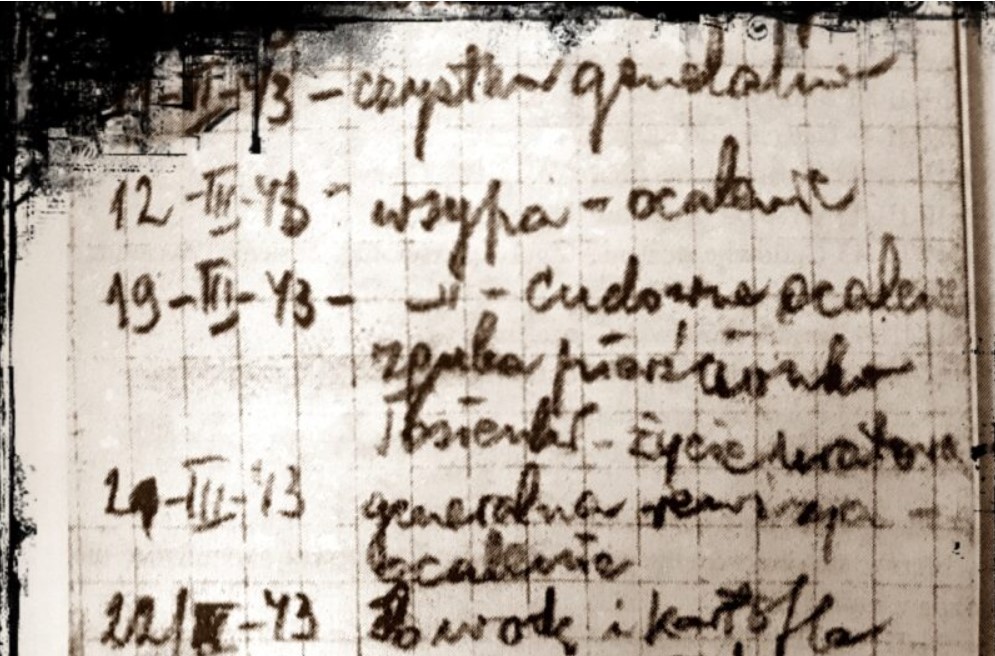 -II-43 - czystka generalna
12-III-43 - wsypa - ocalenie
19-III-43 - -"- - Cudowne ocalenie
zguba pierścionka
Tosieńki - życie uratowa
21-III-43 generalna rewizja -
ocalenie
22/III-43 Po wodę i kartofle